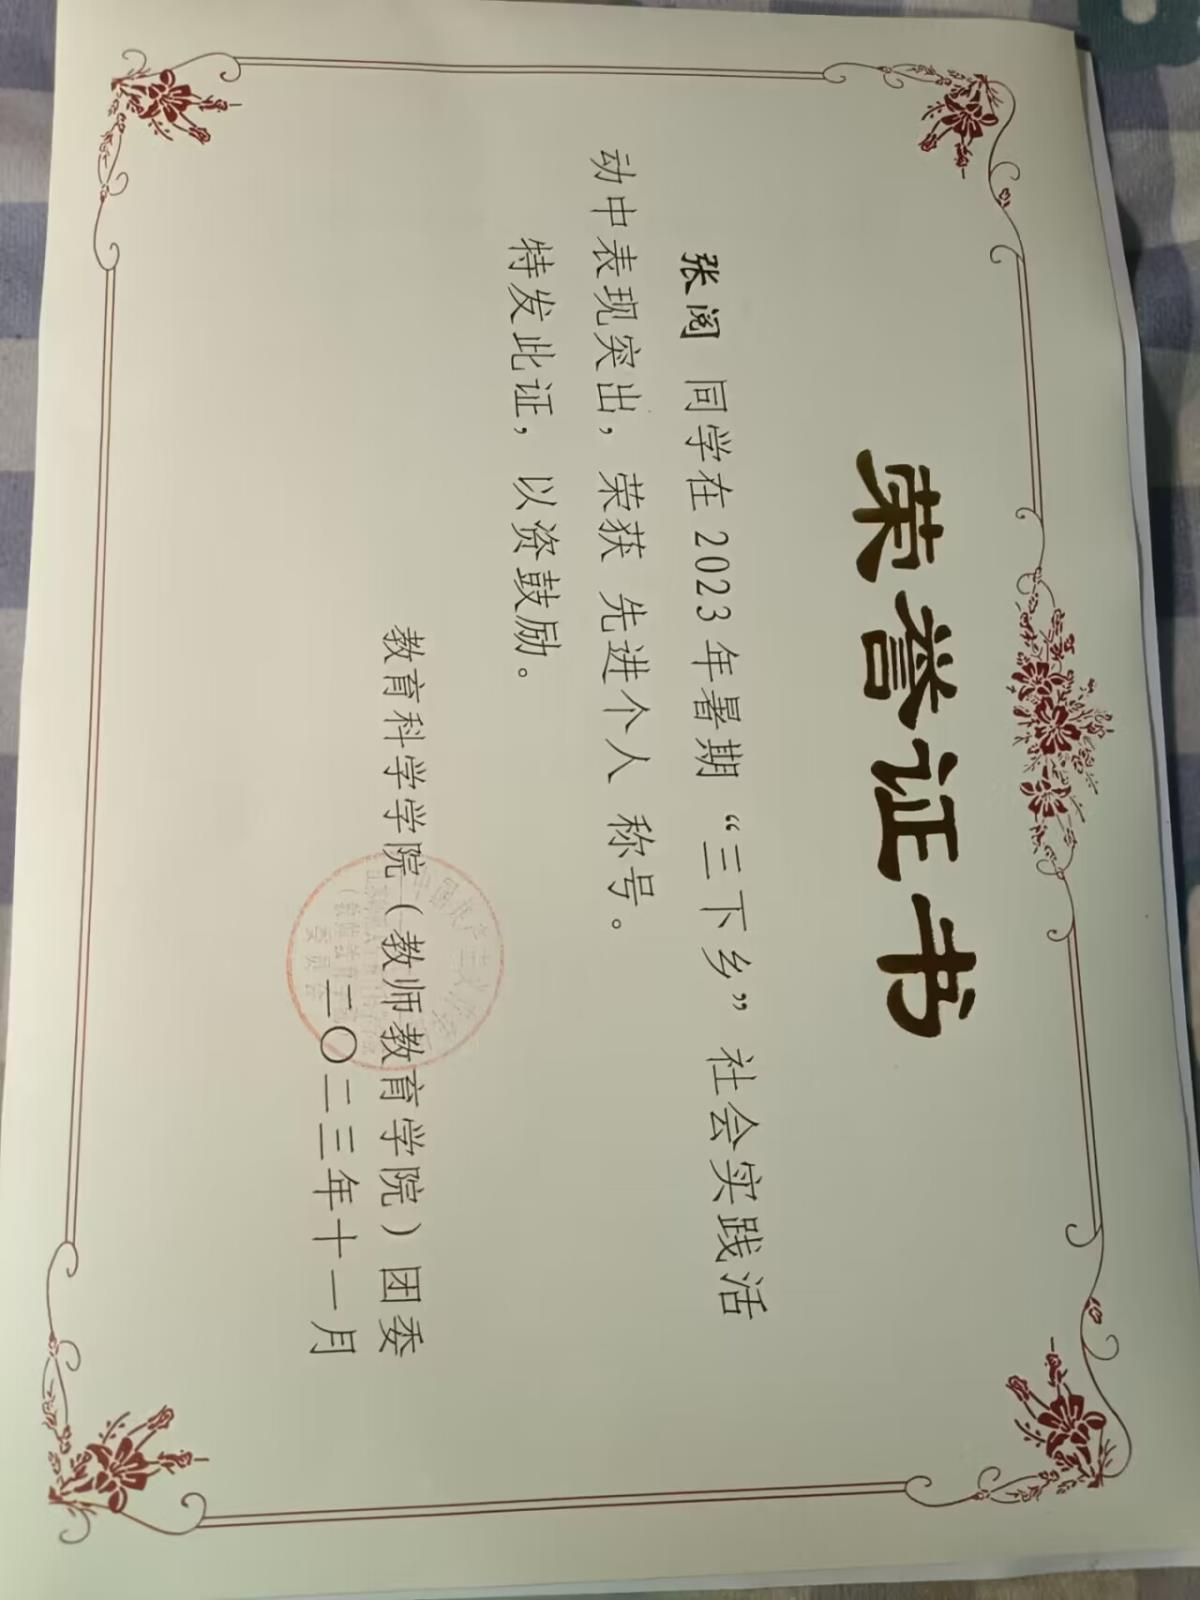 荣誉证书
张阅 同学在 2023 年暑期 “三下乡” 社会实践活
动中表现突出，荣获 先进个人 称号。
特发此证，以资鼓励。
教育科学学院（教师教育学院）团委
二〇二三年十一月
委员会